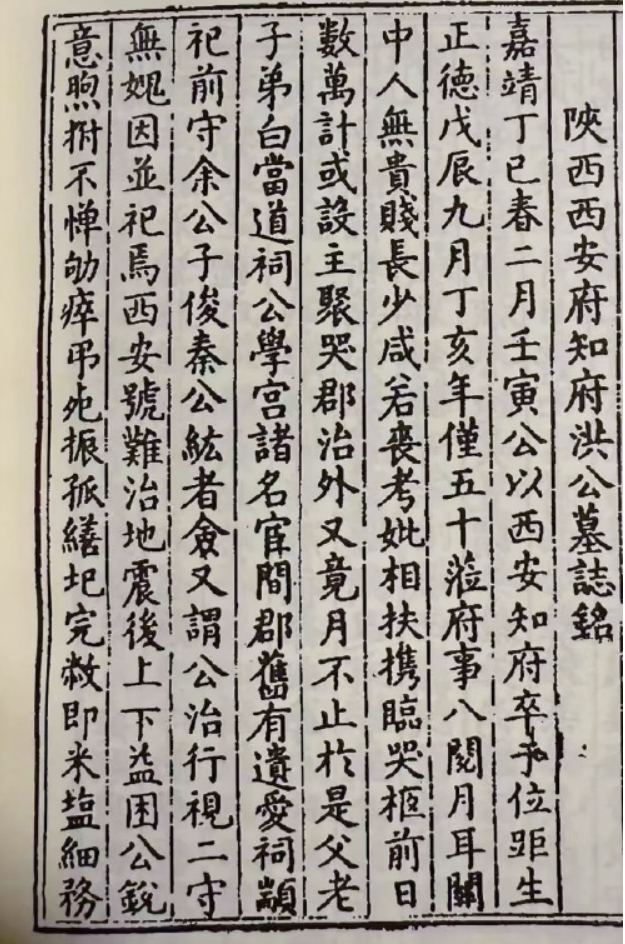 陝西西安府知府洪公墓誌銘
嘉靖丁巳春二月壬寅公以西安知府卒于位距生
正德戊辰九月丁亥年僅五十蒞府事八閱月耳關
中人無貴賤長少咸若喪考妣相扶携臨哭柩前日
数萬計或設主聚哭郡治外又竟月不止於是父老
子弟白當道祠公學宫諸名宦間郡舊有遺愛祠顓
祀前守余公子俊秦公紘者僉又謂公治行視二守
無媿因並祀焉西安號難治地震後上下益困公銳
意喣拊不憚劬瘁弔死振孤繕圮完敝即米塩細務